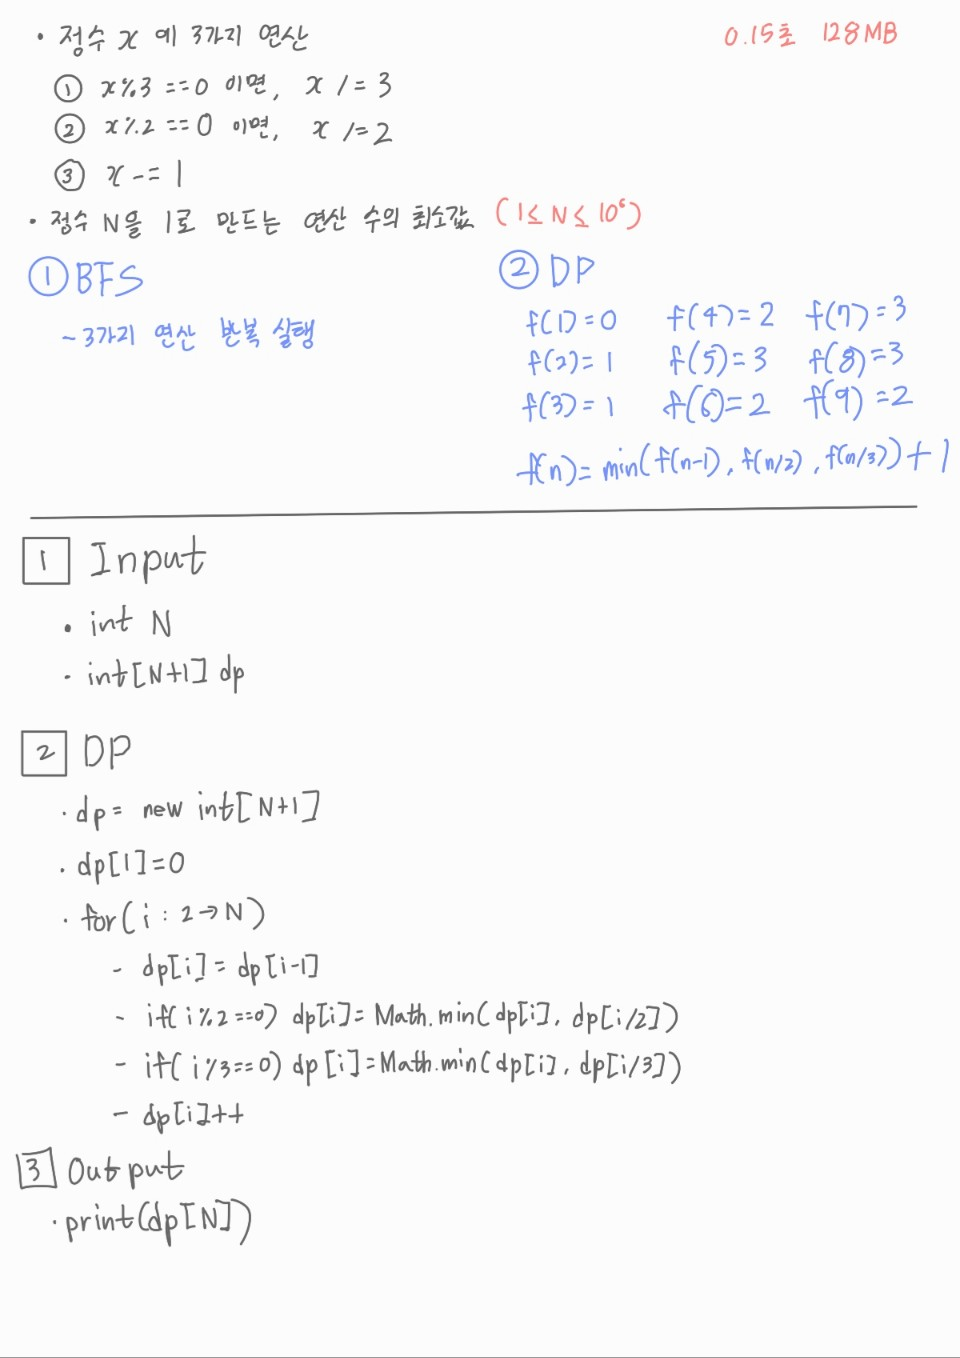 • 정수 x 에 3가지 연산 0.15초 128MB
① x%3 ==0 이면, x /= 3
② x%2 ==0 이면, x /=2
③ x -= 1
• 정수 N을 1로 만드는 연산 수의 최소값 (1≤ N ≤ 10⁶)
① BFS
~ 3가지 연산 반복 실행
② DP
f(1)=0 f(4)=2 f(7)=3
f(2)=1 f(5)=3 f(8)=3
f(3)=1 f(6)=2 f(9)=2
f(n)= min(f(n-1), f(n/2), f(n/3))+1
1 Input
• int N
• int[N+1] dp
2 DP
• dp= new int[N+1]
• dp[1]=0
• for(i : 2→N)
- dp[i] = dp[i-1]
- if(i%2==0) dp[i]=Math.min(dp[i], dp[i/2])
- if(i%3==0) dp[i]=Math.min(dp[i], dp[i/3])
- dp[i]++
3 Output
• print(dp[N])